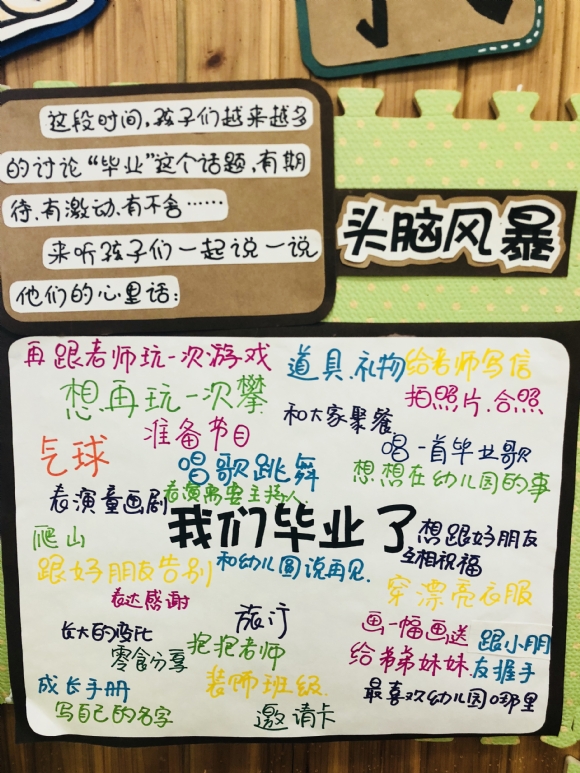 这段时间,孩子们越来越多
的讨论“毕业”这个话题,有期
待.有激动.有不舍……
来听孩子们一起说一说
他们的心里话:
头脑风暴
再跟老师玩一次游戏
道具.礼物
给老师写信
想再玩一次攀
拍照片.合照
和大家聚餐
准备节目
唱一首毕业歌
气球
唱歌跳舞
想想在幼儿园的事
表演童画剧
表演需要主持人.
我们毕业了
爬山
想跟好朋友
互相祝福
跟好朋友告别
和幼儿园说再见.
穿漂亮衣服
表达感谢
旅行
画一幅画送
给弟弟妹妹
跟小朋
友握手
长大的变化
抱抱老师
零食分享
成长手册
装饰班级.
最喜欢幼儿园哪里
写自己的名字
邀请卡